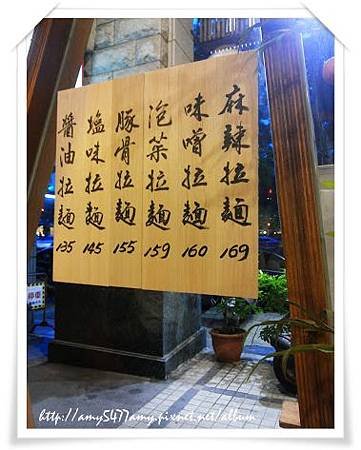 麻辣拉麵 169
味噌拉麵 160
泡菜拉麵 159
豚骨拉麵 155
塩味拉麵 145
醬油拉麵 135
http://amy5477amy.pixnet.net/album